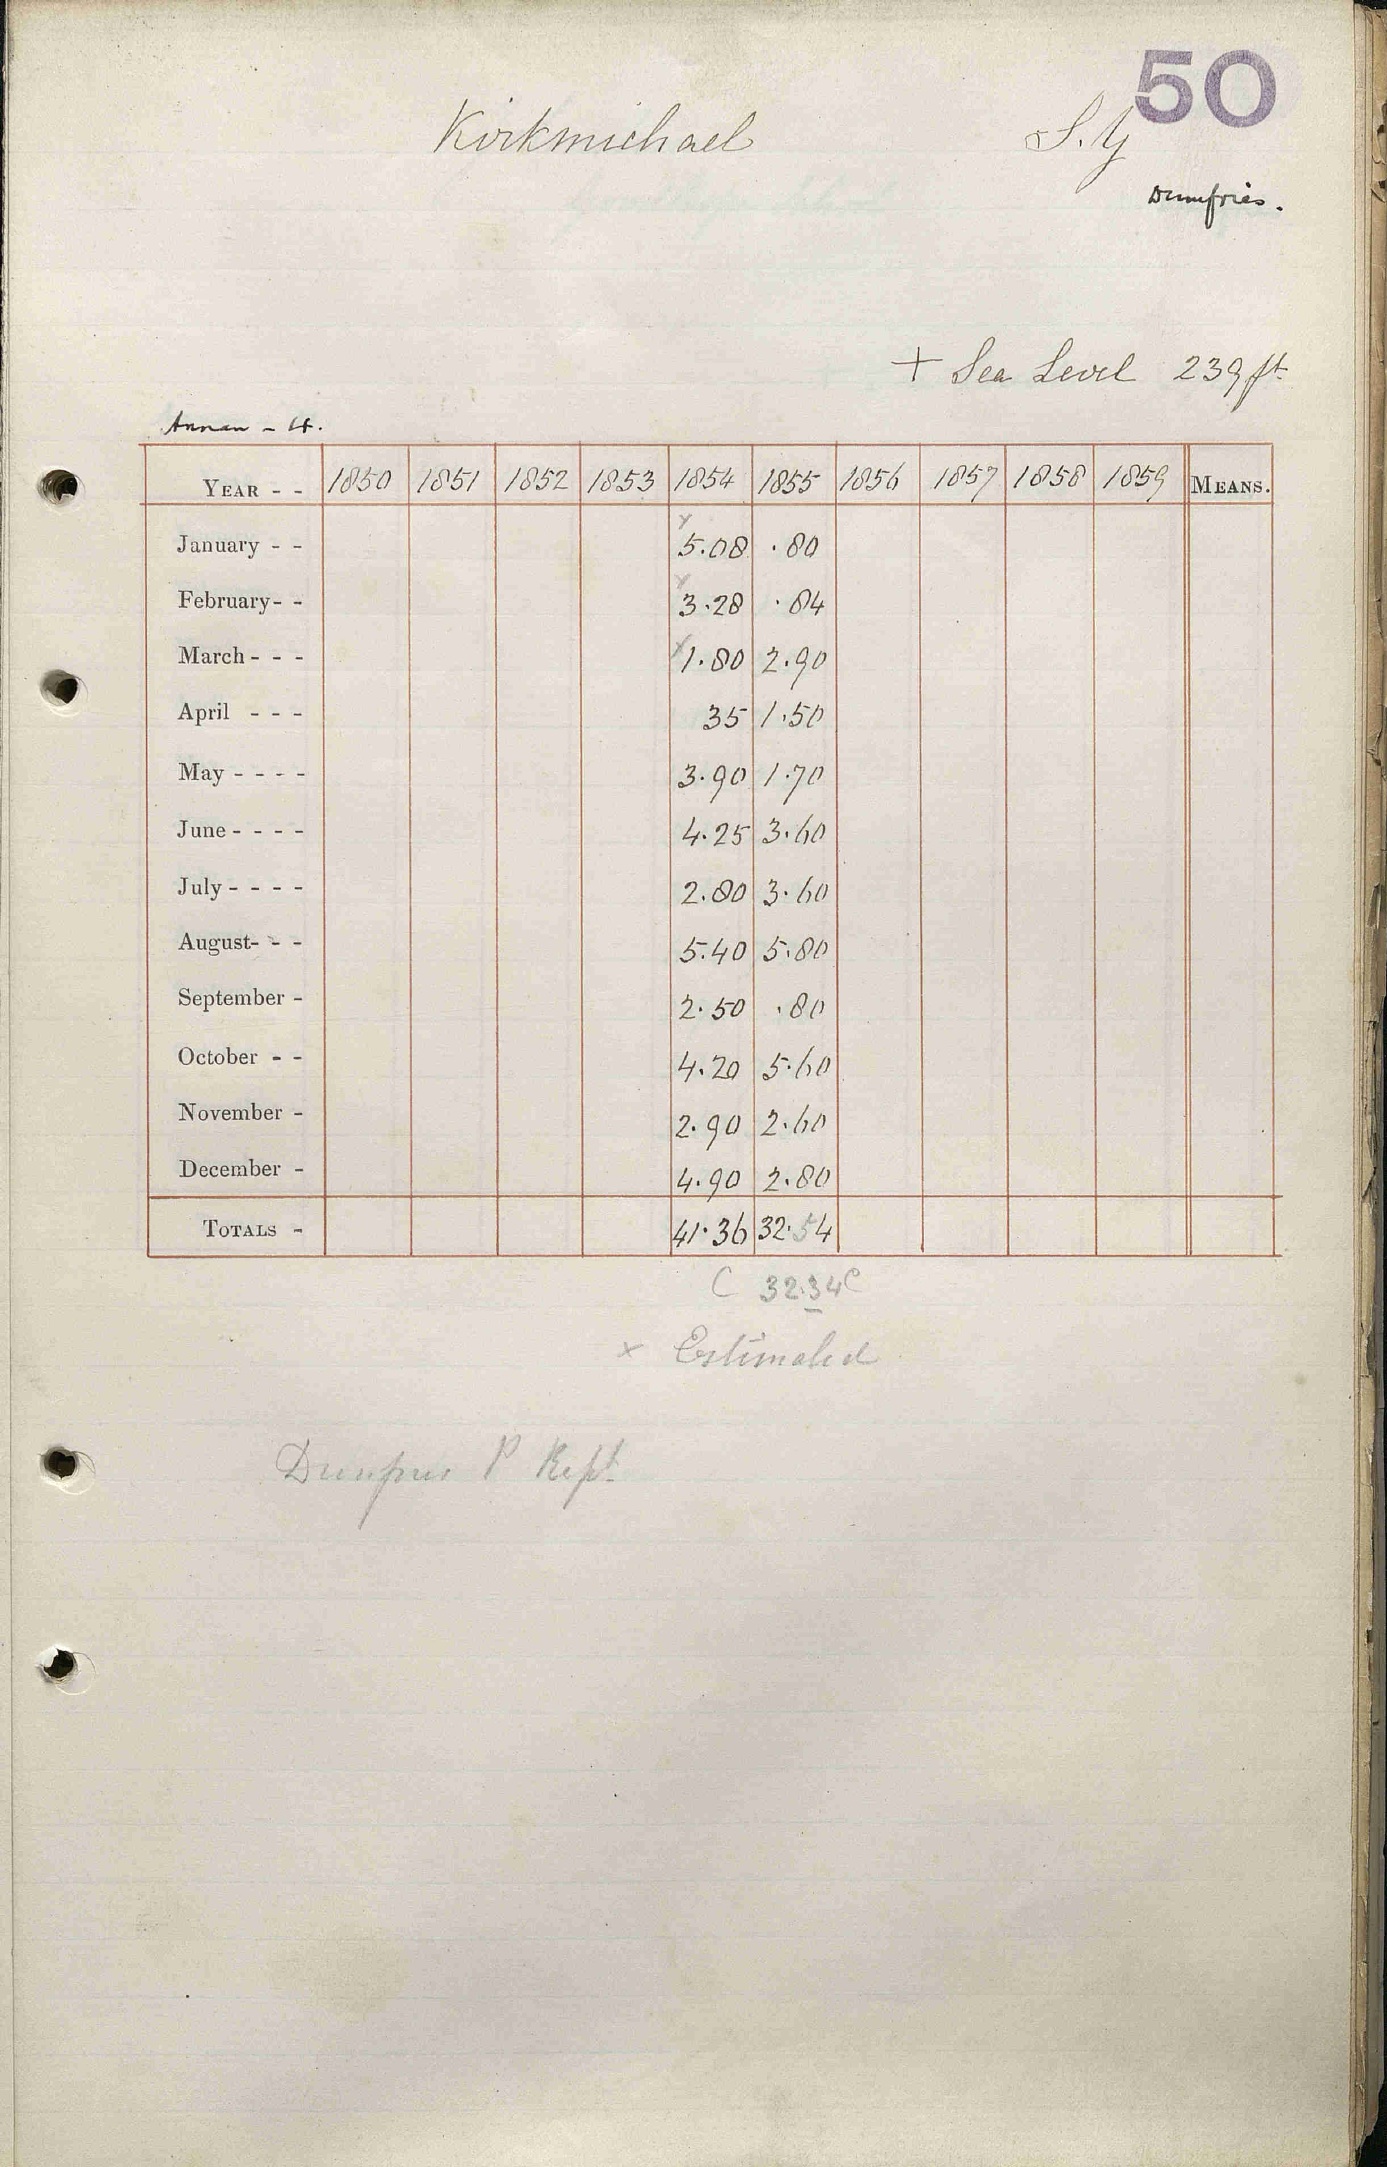 50
Kirkmichael S.Y
Dumfries.
+ Sea Level 239 ft
Annan - 
YEAR - - 1850 1851 1852 1853 1854 1855 1856 1857 1858 1859 MEANS.
January - - x 5.08 .80
February - - x 3.28 .84
March - - - x 1.80 2.90
April - - - 35 1.50
May - - - - 3.90 1.70
June - - - - 4.25 3.60
July - - - - 2.80 3.60
August - - - 5.40 5.80
September - 2.50 .80
October - - 4.20 5.60
November - 2.90 2.60
December - 4.90 2.80
TOTALS - 41.36 32.54
C 32.34 C
x Estimated
Dumfries P Rept